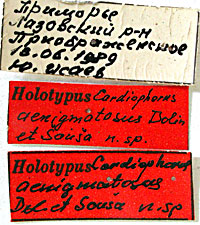 Приморье
Лазовский р-н
Преображенское
18.06.1989
Ю. Исаев
Holotypus Cardiophorus
aenigmatosus Dolin
et Sauša n. sp.
Holotypus Cardiophorus
aenigmatosus
Dol. et Sauša n. sp